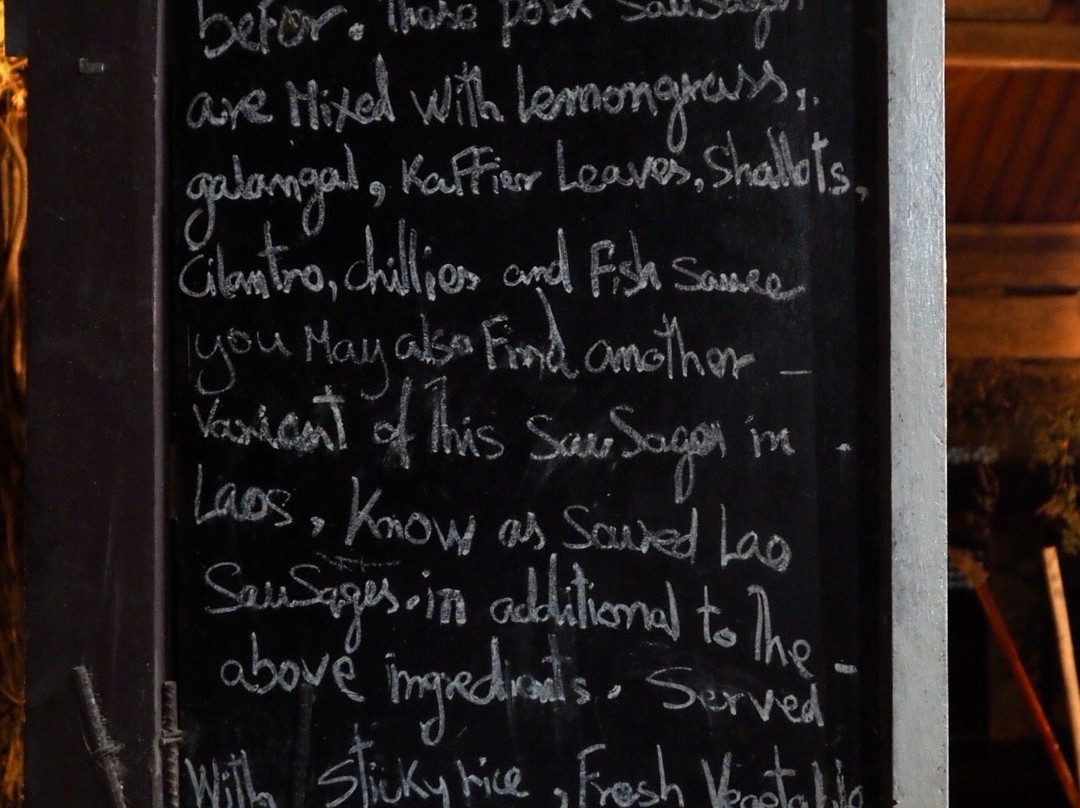 befor. Those pork Sausages
are Mixed with Lemongrass,.
galangal, Kaffier Leaves, Shallots,
Cilantro, chillies and Fish Sauce
you May also Find another -
Varient of This SauSages in .
Laos, Know as Soured Lao
SauSages. in additional to The
above ingredients. Served
With Sticky rice, Fresh Vegetable